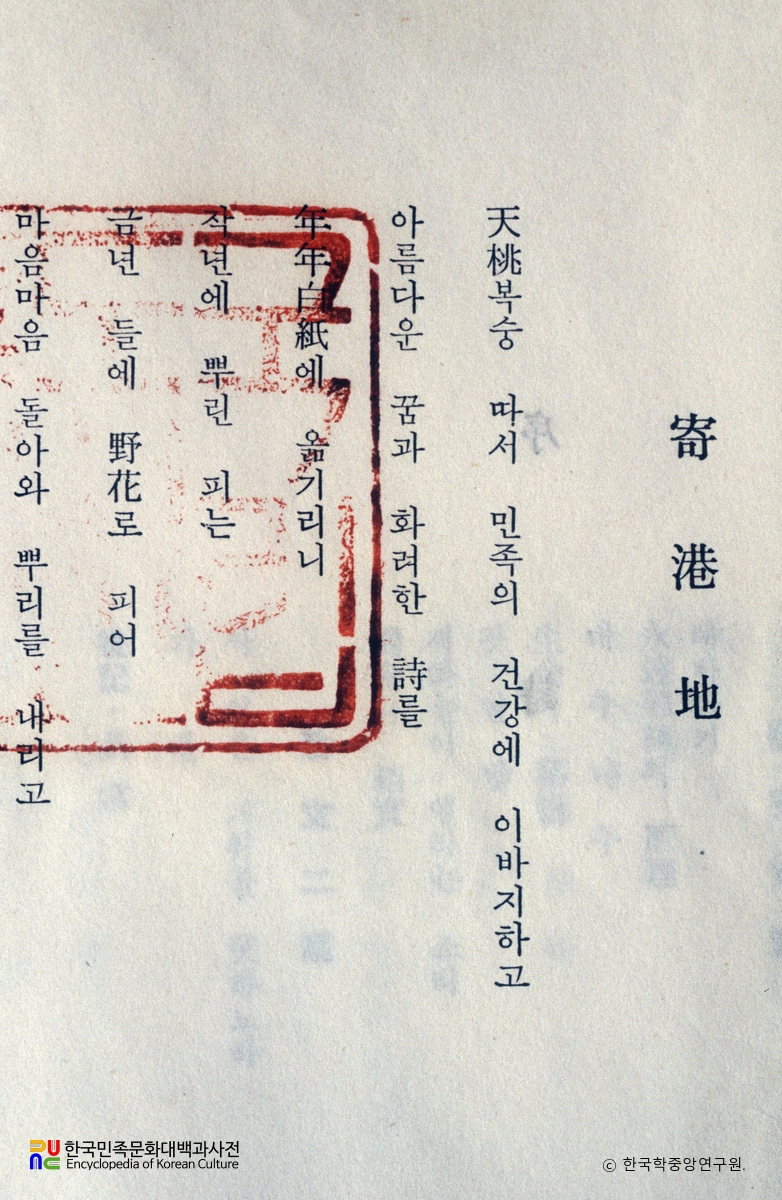 寄港地
天桃복숭 따서 민족의 건강에 이바지하고
아름다운 꿈과 화려한 詩를
年年白紙에 옮기리니
작년에 뿌린 피는
금년 들에 野花로 피어
마음마음 돌아와 뿌리를 내리고
한국민족문화대백과사전
Encyclopedia of Korean Culture
ⓒ 한국학중앙연구원.